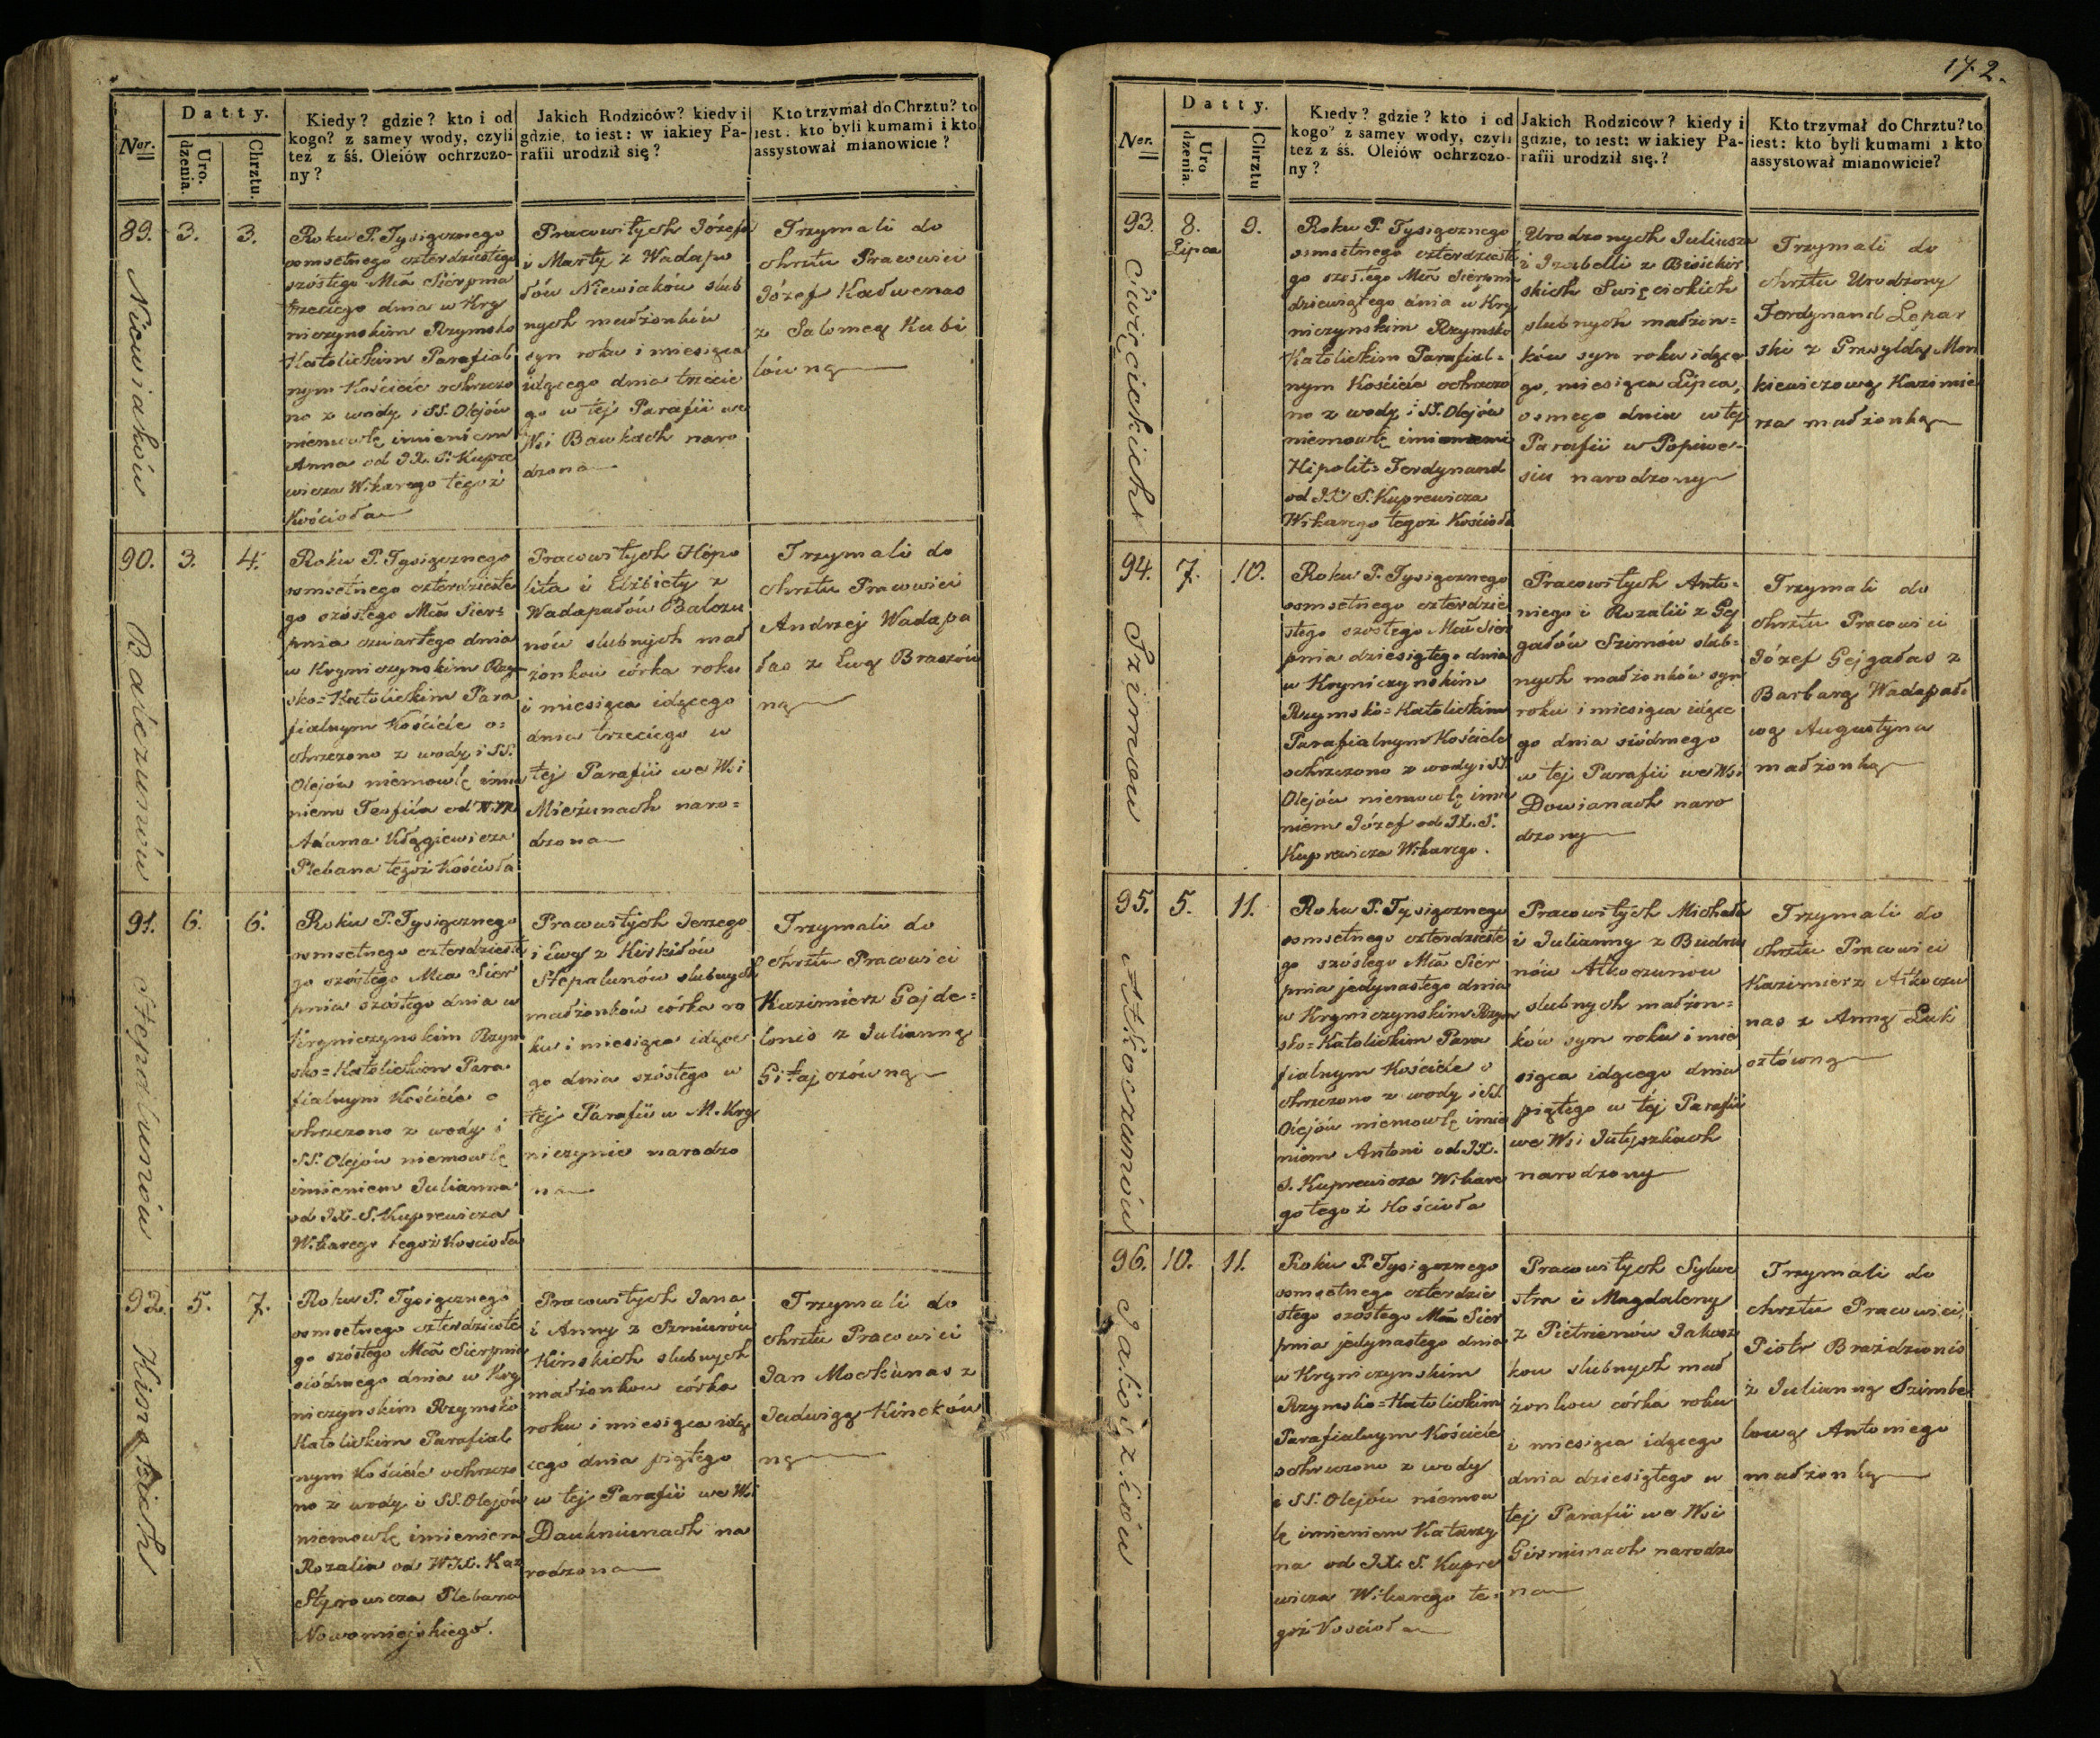 172.
Nor.
Datty.
Uro.
dzenia.
Chrztu.
Kiedy? gdzie? kto i od
kogo? z samey wody, czyli
też z śś. Oleiów ochrzczo-
ny?
Jakich Rodziców? kiedy i
gdzie, to iest: w iakiey Pa-
rafii urodził się?
Kto trzymał do Chrztu? to
iest: kto byli kumami i kto
assystował mianowicie?
89.
3.
3.
Niewiaków
Roku P. Tysiącznego
osmsetnego czterdziestego
szóstego Mca Sierpnia
trzeciego dnia w Kry
niczynskim Rzymsko
Katolickim Parafial
nym Kościele ochrzczo
no z wody i SS. Olejów
niemowlę imieniem
Anna od JX. S. Kupre
wicza Wikarego tegoż
Kościoła
Pracowitych Józefa
i Marty z Wadapo
łów Niewiaków ślub
nych małżonków
syn roku i miesiąca
idącego dnia trzecie
go w tej Parafii we
Wsi Bawkach naro
dzona
Trzymali do
chrztu Pracowici
Józef Kadwenas
z Salomeą Kubi
lówną
90.
3.
4.
Balczunów
Roku P. Tysiącznego
osmsetnego czterdzieste
go szóstego Mca Sier=
pnia czwartego dnia
w Kryniczynskim Rzy-
sko=Katolickim Para
fialnym Kościele o=
chrzczono z wody i SS.
Olejów niemowlę imie
niem Teofila od
Adama Kłągiewicza
Plebana tegoż Kościoła
Pracowitych Hipo
lita i Elżbiety z
Wadapałów Balczu
nów slubnych mał
żonkow córka roku
i miesiąca idącego
dnia trzeciego w
tej Parafii we Wsi
Mieżunach naro=
dzona
Trzymali do
chrztu Pracowici
Andrzej Wadapa
łas z Ewą Braszów
ną
91.
6.
6.
Stepalunów
Roku P. Tysiącznego
osmsetnego czterdzieste
go szóstego Mca Sier
pnia szóstego dnia w
Kryniczynskim Rzym
sko=Katolickim Para
fialnym Kościele o
chrzczono z wody i
SS. Olejów niemowlę
imieniem Julianna
od JX. S. Kuprewicza
Wikarego tegoż Kościoła
Pracowitych Jerzego
i Ewy z Kirkiłów
Stepalunów slubnych
małżonków córka ro
ku i miesiąca idące
go dnia szóstego w
tej Parafii w M. Kry
niczynie narodzo
na
Trzymali do
chrztu Pracowici
Kazimierz Gajde=
lonis z Julianną
Gitajczówną
92.
5.
7.
Kinskich
Roku P. Tysiącznego
osmsetnego czterdzieste
go szóstego Mca Sierpnia
siódmego dnia w Kry
niczynskim Rzymsko
Katolickim Parafial
nym Kościele ochrzczo
no z wody i SS. Olejów
niemowlę imieniem
Rozalia od WJX. Kaz
Styrowicza Plebana
Nowomiejskiego.
Pracowitych Jana
i Anny z Szniurów
Kinskich slubnych
małżonkow córka
roku i miesiąca idą
cego dnia piątego
w tej Parafii we Wsi
Daukniunach na
rodzona
Trzymali do
chrztu Pracowici
Jan Mockunas z
Jadwigą Kinców
ną
Nor.
Datty.
Uro
dzenia.
Chrztu
Kiedy? gdzie? kto i od
kogo? z samey wody, czyli
też z śś. Oleiów ochrzczo-
ny?
Jakich Rodziców? kiedy i
gdzie, to iest: w iakiey Pa-
rafii urodził się.?
Kto trzymał do Chrztu? to
iest: kto byli kumami i kto
assystował mianowicie?
93.
8.
Lipca
9.
Święcickich
Roku P. Tysiącznego
osmsetnego czterdzieste
go szóstego Mca Sierpnia
dziewiątego dnia w Kry
niczynskim Rzymsko
Katolickim Parafial=
nym Kościele ochrzczo
no z wody i SS. Olejów
niemowlę imionami
Hipolit=Ferdynand
od JX. S. Kuprewicza
Wikarego tegoż Kościoła
Urodzonych Juliusza
i Izabelli z
skich Swięcickich
slubnych małżon=
ków syn roku idące
go, miesiąca Lipca,
osmego dnia w tej
Parafii w Popiwe-
siu narodzony
Trzymali do
chrztu Urodzony
Ferdynand Lopar
ski z Praxydą Mon
kiewiczową Kazimie
rza małżonką
94.
7.
10.
Szimow
Roku P. Tysiącznego
osmsetnego czterdzie
stego szóstego Mca Sier
pnia dziesiątego dnia
w Kryniczynskim
Rzymsko=Katolickim
Parafialnym Kościele
ochrzczono z wody i SS.
Olejów niemowlę imie
niem Józef od JX. S.
Kuprewicza Wikarego.
Pracowitych Anto=
niego i Rozalii z Gej
gałów Szimów slub=
nych małżonków syn
roku i miesiąca idące
go dnia siódmego
w tej Parafii we Wsi
Dowianach naro
dzony
Trzymali do
chrztu Pracowici
Józef Gejgałas z
Barbarą Wadapało
wą Augustyna
małżonką
95.
5.
11.
Atkoczunów
Roku P. Tysiącznego
osmsetnego czterdzieste
go szóstego Mca Sier
pnia jedynastego dnia
w Kryniczynskim Rzym
sko=Katolickim Para
fialnym Kościele o
chrzczono z wody i SS.
Olejów niemowlę imie
niem Antoni od JX.
S. Kuprewicza Wikare
go tegoż Kościoła
Pracowitych Michała
i Julianny z Budru
nów Atkoczunow
slubnych małżon=
ków syn roku i mie
siąca idącego dnia
piątego w tej Parafii
we Wsi Jutyszkach
narodzony
Trzymali do
chrztu Pracowici
Kazimierz Atkoczu
nas z Anną Luk
sztówną
96.
10.
11.
Jakóżków
Roku P. Tysiącznego
osmsetnego czterdzie
stego szóstego Mca Sier
pnia jedynastego dnia
w Kryniczynskim
Rzymsko=Katolickim
Parafialnym Kościele
ochrzczono z wody
i SS. Olejów niemow
lę imieniem Katarzy
na od JX. S. Kupre
wicza Wikarego te=
goż Kościoła
Pracowitych Sylwe
stra i Magdaleny
z Pietrienów Jakusz
kow slubnych mał
żonkow córka roku
i miesiąca idącego
dnia dziesiątego w
tej Parafii we Wsi
Girniunach narodzo
na
Trzymali do
chrztu Pracowici,
Piotr Braździonis
z Julianną Szimbe
lową Antoniego
małżonką